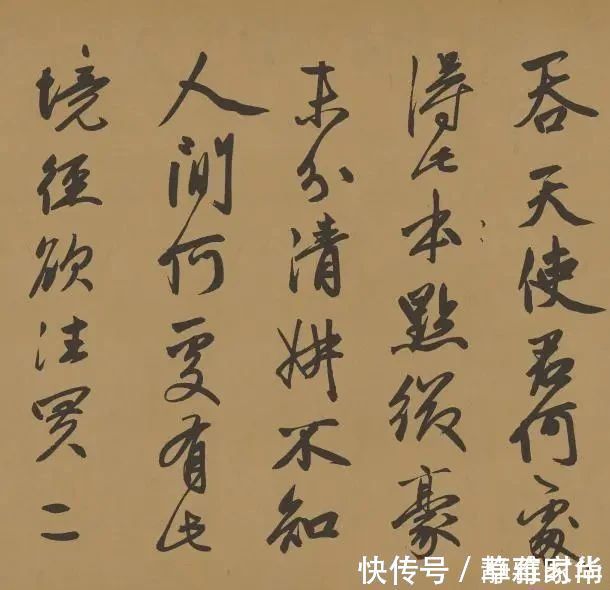 吞天使君何處
得此本點綴豪
末分清妍不知
人間何處有此
境徑欲往買二
快传号 /